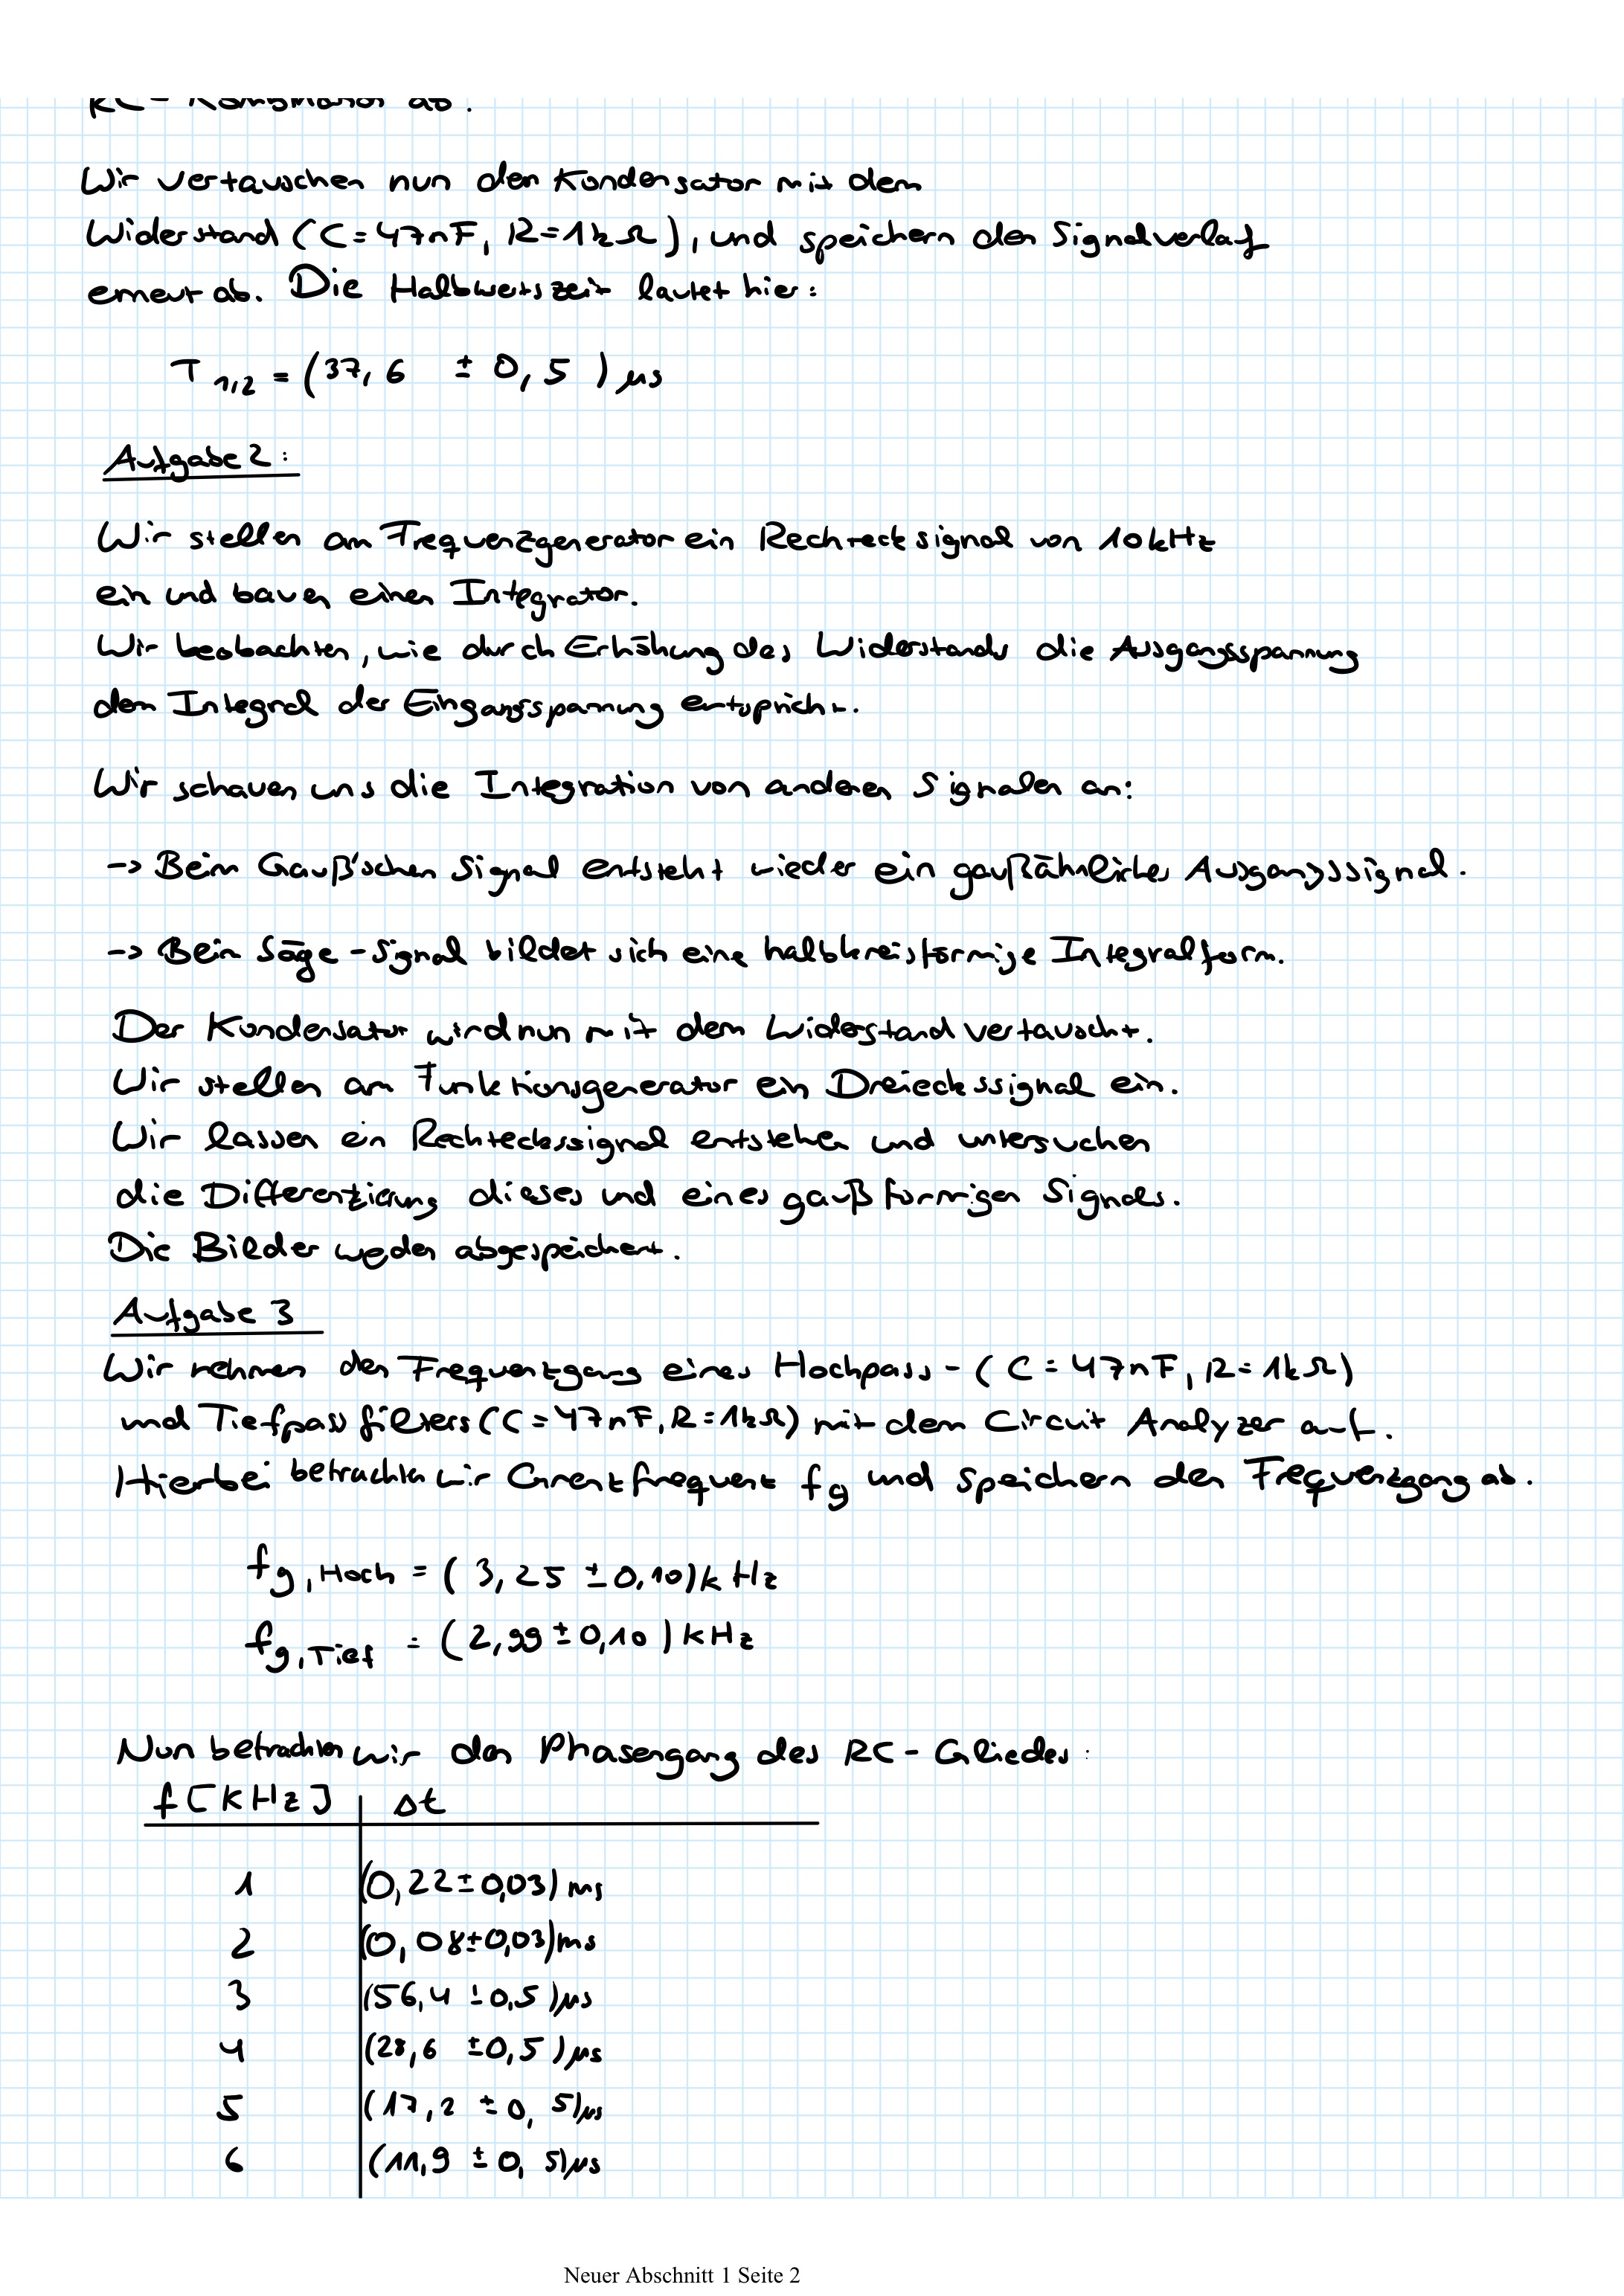 RC - Kombination ab.
Wir vertauschen nun den Kondensator mit dem
Widerstand (C = 47nF, R = 1kΩ), und speichern den Signalverlauf
erneut ab. Die Halbwertszeit lautet hier:
T 1/2 = (37,6 ± 0,5) µs
Aufgabe 2:
Wir stellen am Frequenzgenerator ein Rechtecksignal von 10kHz
ein und bauen einen Integrator.
Wir beobachten, wie durch Erhöhung des Widerstands die Ausgangsspannung
dem Integral der Eingangsspannung entspricht.
Wir schauen uns die Integration von anderen Signalen an:
-> Beim Gauß'schen Signal entsteht wieder ein gaußähnliches Ausgangssignal.
-> Beim Säge - Signal bildet sich eine halbkreisförmige Integralform.
Der Kondensator wird nun mit dem Widerstand vertauscht.
Wir stellen am Funktionsgenerator ein Dreieckssignal ein.
Wir lassen ein Rechteckssignal entstehen und untersuchen
die Differenzierung dieses und eines gaußförmigen Signals.
Die Bilder werden abgespeichert.
Aufgabe 3
Wir nehmen den Frequenzgang eines Hochpass - (C = 47nF, R = 1kΩ)
und Tiefpassfilters (C = 47nF, R = 1kΩ) mit dem Circuit Analyzer auf.
Hierbei betrachten wir Grenzfrequenz fg und speichern den Frequenzgang ab.
fg,Hoch = (3,25 ± 0,10) kHz
fg,Tief = (2,99 ± 0,10) kHz
Nun betrachten wir den Phasengang des RC - Gliedes:
f [kHz] | Δt
1 (0,22 ± 0,03) ms
2 (0,08 ± 0,03) ms
3 (56,4 ± 0,5) µs
4 (28,6 ± 0,5) µs
5 (17,2 ± 0,5) µs
6 (11,9 ± 0,5) µs
Neuer Abschnitt 1 Seite 2